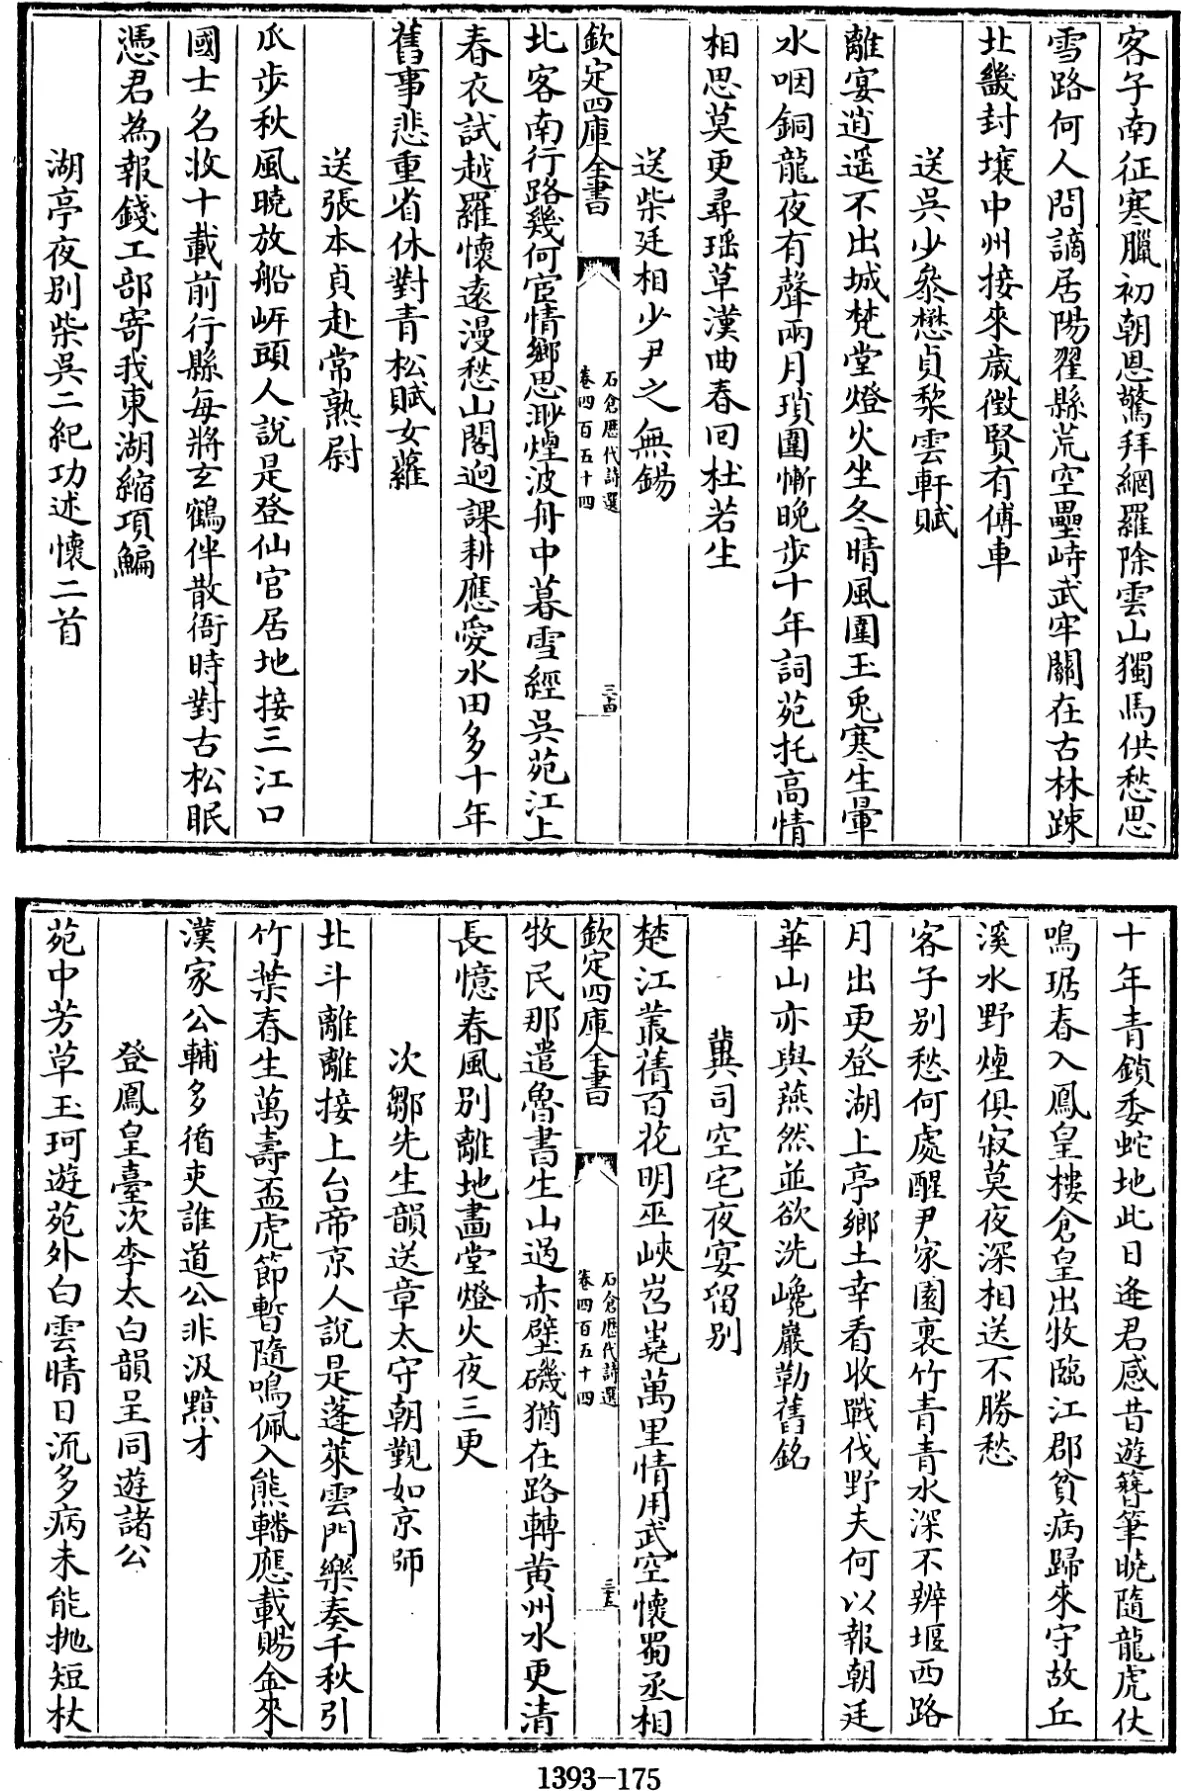 客子南征寒臘初朝恩驚拜網羅除雲山獨馬供愁思
雪路何人問謫居陽翟縣荒空壘峙武牢關在古林踈
北畿封壤中州接來歲徴賢有傅車
送吳少叅懋貞棃雲軒賦
離宴逍遥不出城梵堂燈火坐冬晴風圍玉兎寒生暈
水咽銅龍夜有聲兩月瑣圍慚晩步十年詞苑托高情
相思莫更尋瑶草漢曲春囘杜若生
送柴廷相少尹之無錫
欽定四庫全書
石倉歴代詩選
卷四百五十四
三十四
北客南行路幾何宦情鄉思渺煙波舟中暮雪經吳苑江上
春衣試越羅懷遠漫愁山閣迥課耕應愛水田多十年
舊事悲重省休對青松賦女蘿
送張本貞赴常熟尉
瓜步秋風曉放船岍頭人說是登仙官居地接三江口
國士名收十載前行縣每將玄鶴伴散衙時對古松眠
憑君為報錢工部寄我東湖縮項鯿
湖亭夜別柴吳二紀功述懷二首
十年青鎖委蛇地此日逢君感昔遊簪筆曉隨龍虎仗
鳴琚春入鳳皇樓倉皇出牧臨江郡貧病歸來守故丘
溪水野煙俱寂莫夜深相送不勝愁
客子別愁何處醒尹家園裏竹青青水深不辨堰西路
月出更登湖上亭鄉土幸看收戰伐野夫何以報朝廷
華山亦與燕然並欲洗巉巖勒舊銘
冀司空宅夜宴留別
楚江叢蒨百花明巫峽岧嶤萬里情用武空懷蜀丞相
欽定四庫全書
石倉歴代詩選
卷四百五十四
三十五
牧民那遣魯書生山過赤壁磯猶在路轉黄州水更清
長憶春風別離地畵堂燈火夜三更
次鄒先生韻送章太守朝覲如京師
北斗離離接上台帝京人說是蓬萊雲門樂奏千秋引
竹葉春生萬壽盃虎節暫隨鳴佩入熊轓應載賜金來
漢家公輔多循吏誰道公非汲黯才
登鳳皇臺次李太白韻呈同遊諸公
苑中芳草玉珂遊苑外白雲晴日流多病未能抛短杖
1393-175